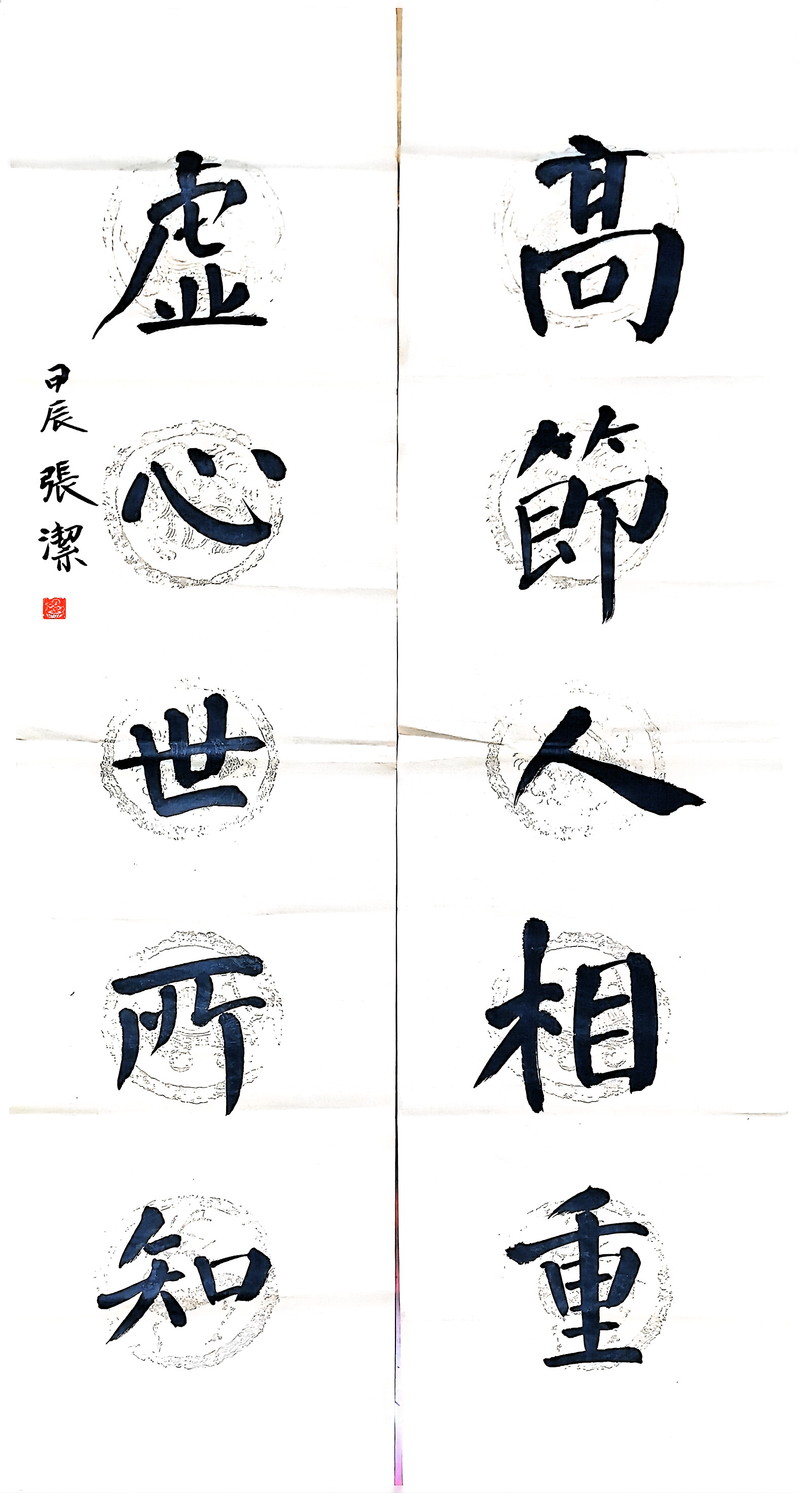 髙節人相重
虚心世所知
甲辰 張潔